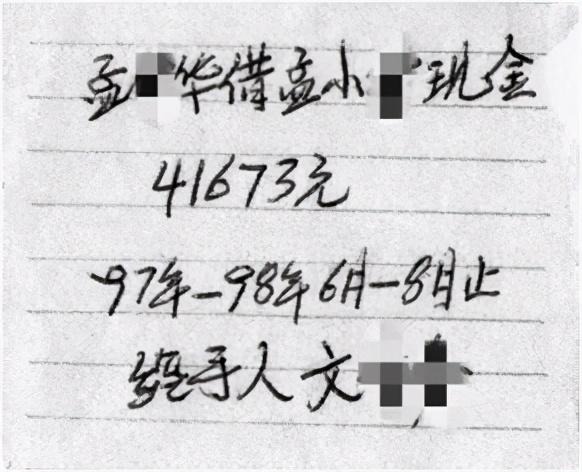 孟华借孟小现金
41673元
97年-98年6月-8月止
经手人文